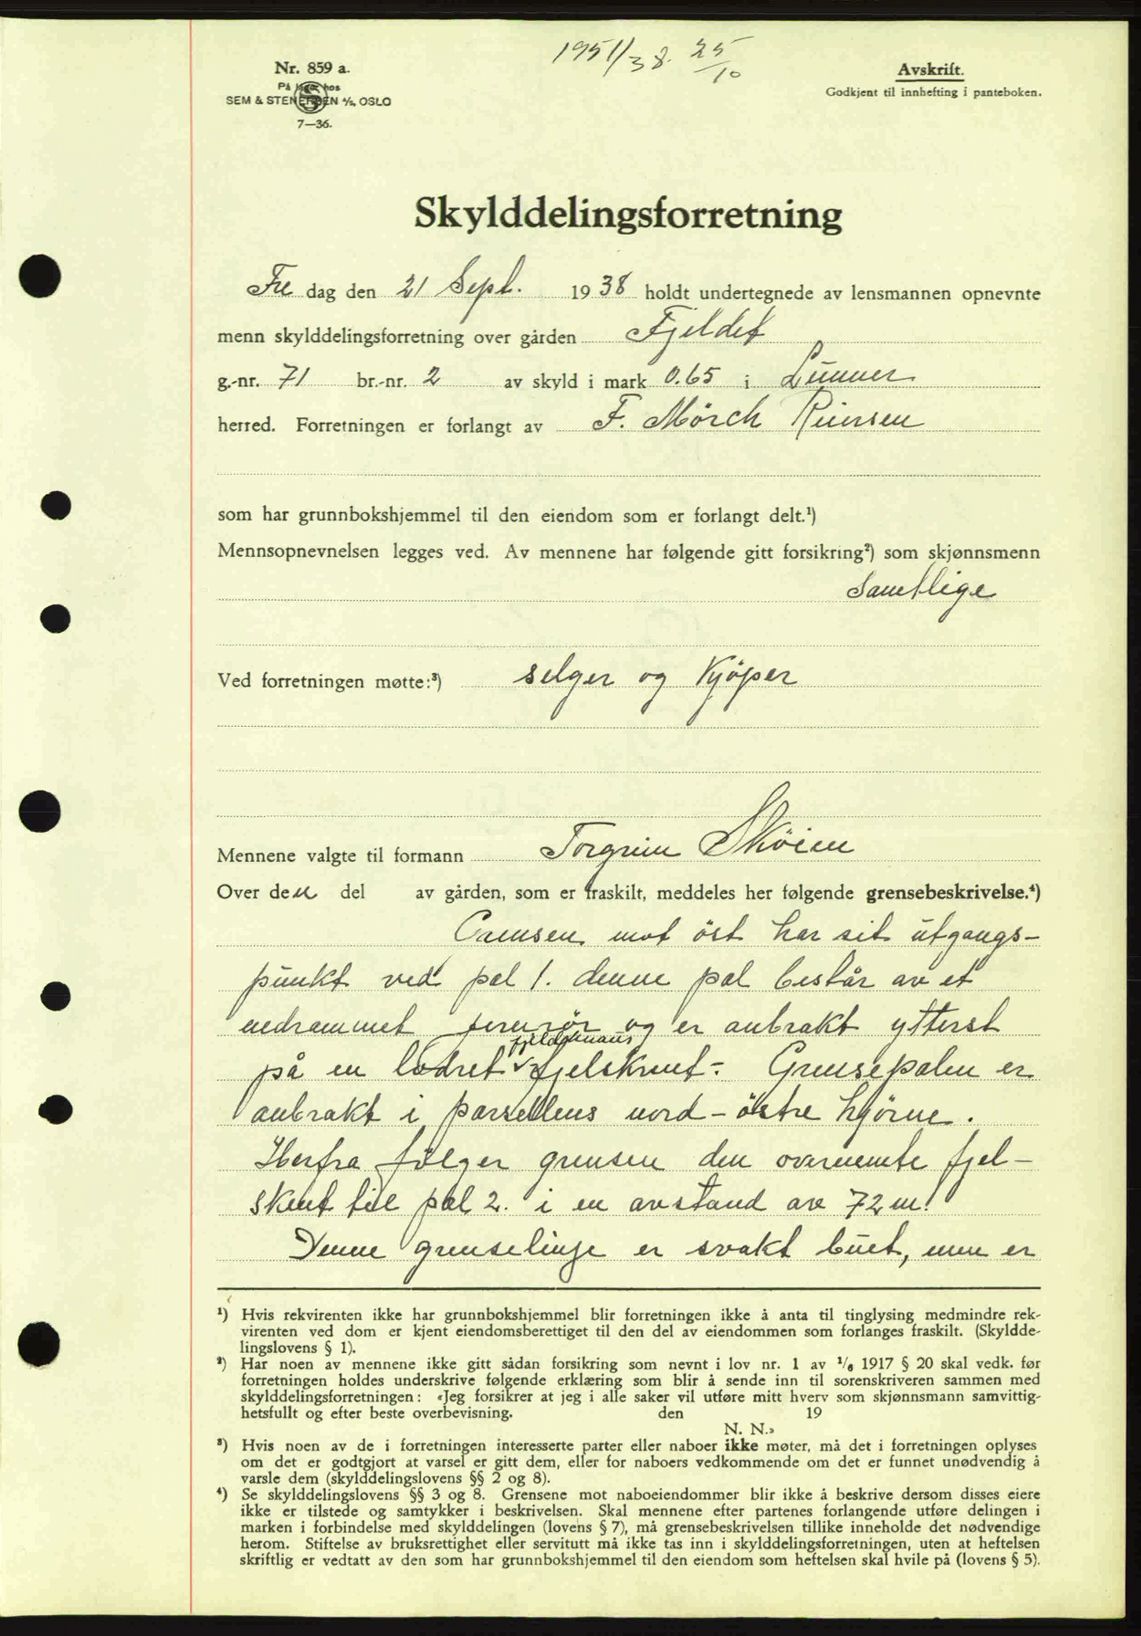 1951/38. 25/10
Nr. 859 a.
På lager hos
SEM & STENERSEN A/S, OSLO
7—36.
Avskrift.
Godkjent til innhefting i panteboken.
Skylddelingsforretning
Fre dag den 21 Sept. 1938 holdt undertegnede av lensmannen opnevnte
menn skylddelingsforretning over gården Fjeldet
g.-nr. 71 br.-nr. 2 av skyld i mark 0.65 i Lunner
herred. Forretningen er forlangt av F. Mörch
som har grunnbokshjemmel til den eiendom som er forlangt delt.¹)
Mennsopnevnelsen legges ved. Av mennene har følgende gitt forsikring²) som skjønnsmenn
Samtlige
Ved forretningen møtte:³) selger og Kjöper
Mennene valgte til formann Torgrim Sköien
Over den del av gården, som er fraskilt, meddeles her følgende grensebeskrivelse.⁴)
Grensen mot öst har sit utgangs-
punkt ved pel 1. denne pel består av et
nedrammet jernrör og er anbrakt ytterst
på en lodret fjelskrent. Grensepelen er
anbrakt i parsellens nord-östre hjörne.
Herfra følger grensen den overnemte fjel-
skrent til pel 2. i en avstand av 72 m.
Denne grenselinje er svakt buet, men er
¹) Hvis rekvirenten ikke har grunnbokshjemmel blir forretningen ikke å anta til tinglysing medmindre rek-
virenten ved dom er kjent eiendomsberettiget til den del av eiendommen som forlanges fraskilt. (Skyldde-
lingslovens § 1).
²) Har noen av mennene ikke gitt sådan forsikring som nevnt i lov nr. 1 av 1/6 1917 § 20 skal vedk. før
forretningen holdes underskrive følgende erklæring som blir å sende inn til sorenskriveren sammen med
skylddelingsforretningen: «Jeg forsikrer at jeg i alle saker vil utføre mitt hverv som skjønnsmann samvittig-
hetsfullt og efter beste overbevisning. den 19
N. N.»
³) Hvis noen av de i forretningen interesserte parter eller naboer ikke møter, må det i forretningen oplyses
om det er godtgjort at varsel er gitt dem, eller for naboers vedkommende om det er funnet unødvendig å
varsle dem (skylddelingslovens §§ 2 og 8).
⁴) Se skylddelingslovens §§ 3 og 8. Grensene mot naboeiendommer blir ikke å beskrive dersom disses eiere
ikke er tilstede og samtykker i beskrivelsen. Skal mennene efter partenes forlangende utføre delingen i
marken i forbindelse med skylddelingen (lovens § 7), må grensebeskrivelsen tillike inneholde det nødvendige
herom. Stiftelse av bruksrettighet eller servitutt må ikke tas inn i skylddelingsforretningen, uten at heftelsen
skriftlig er vedtatt av den som har grunnbokshjemmel til den eiendom som heftelsen skal hvile på (lovens § 5).